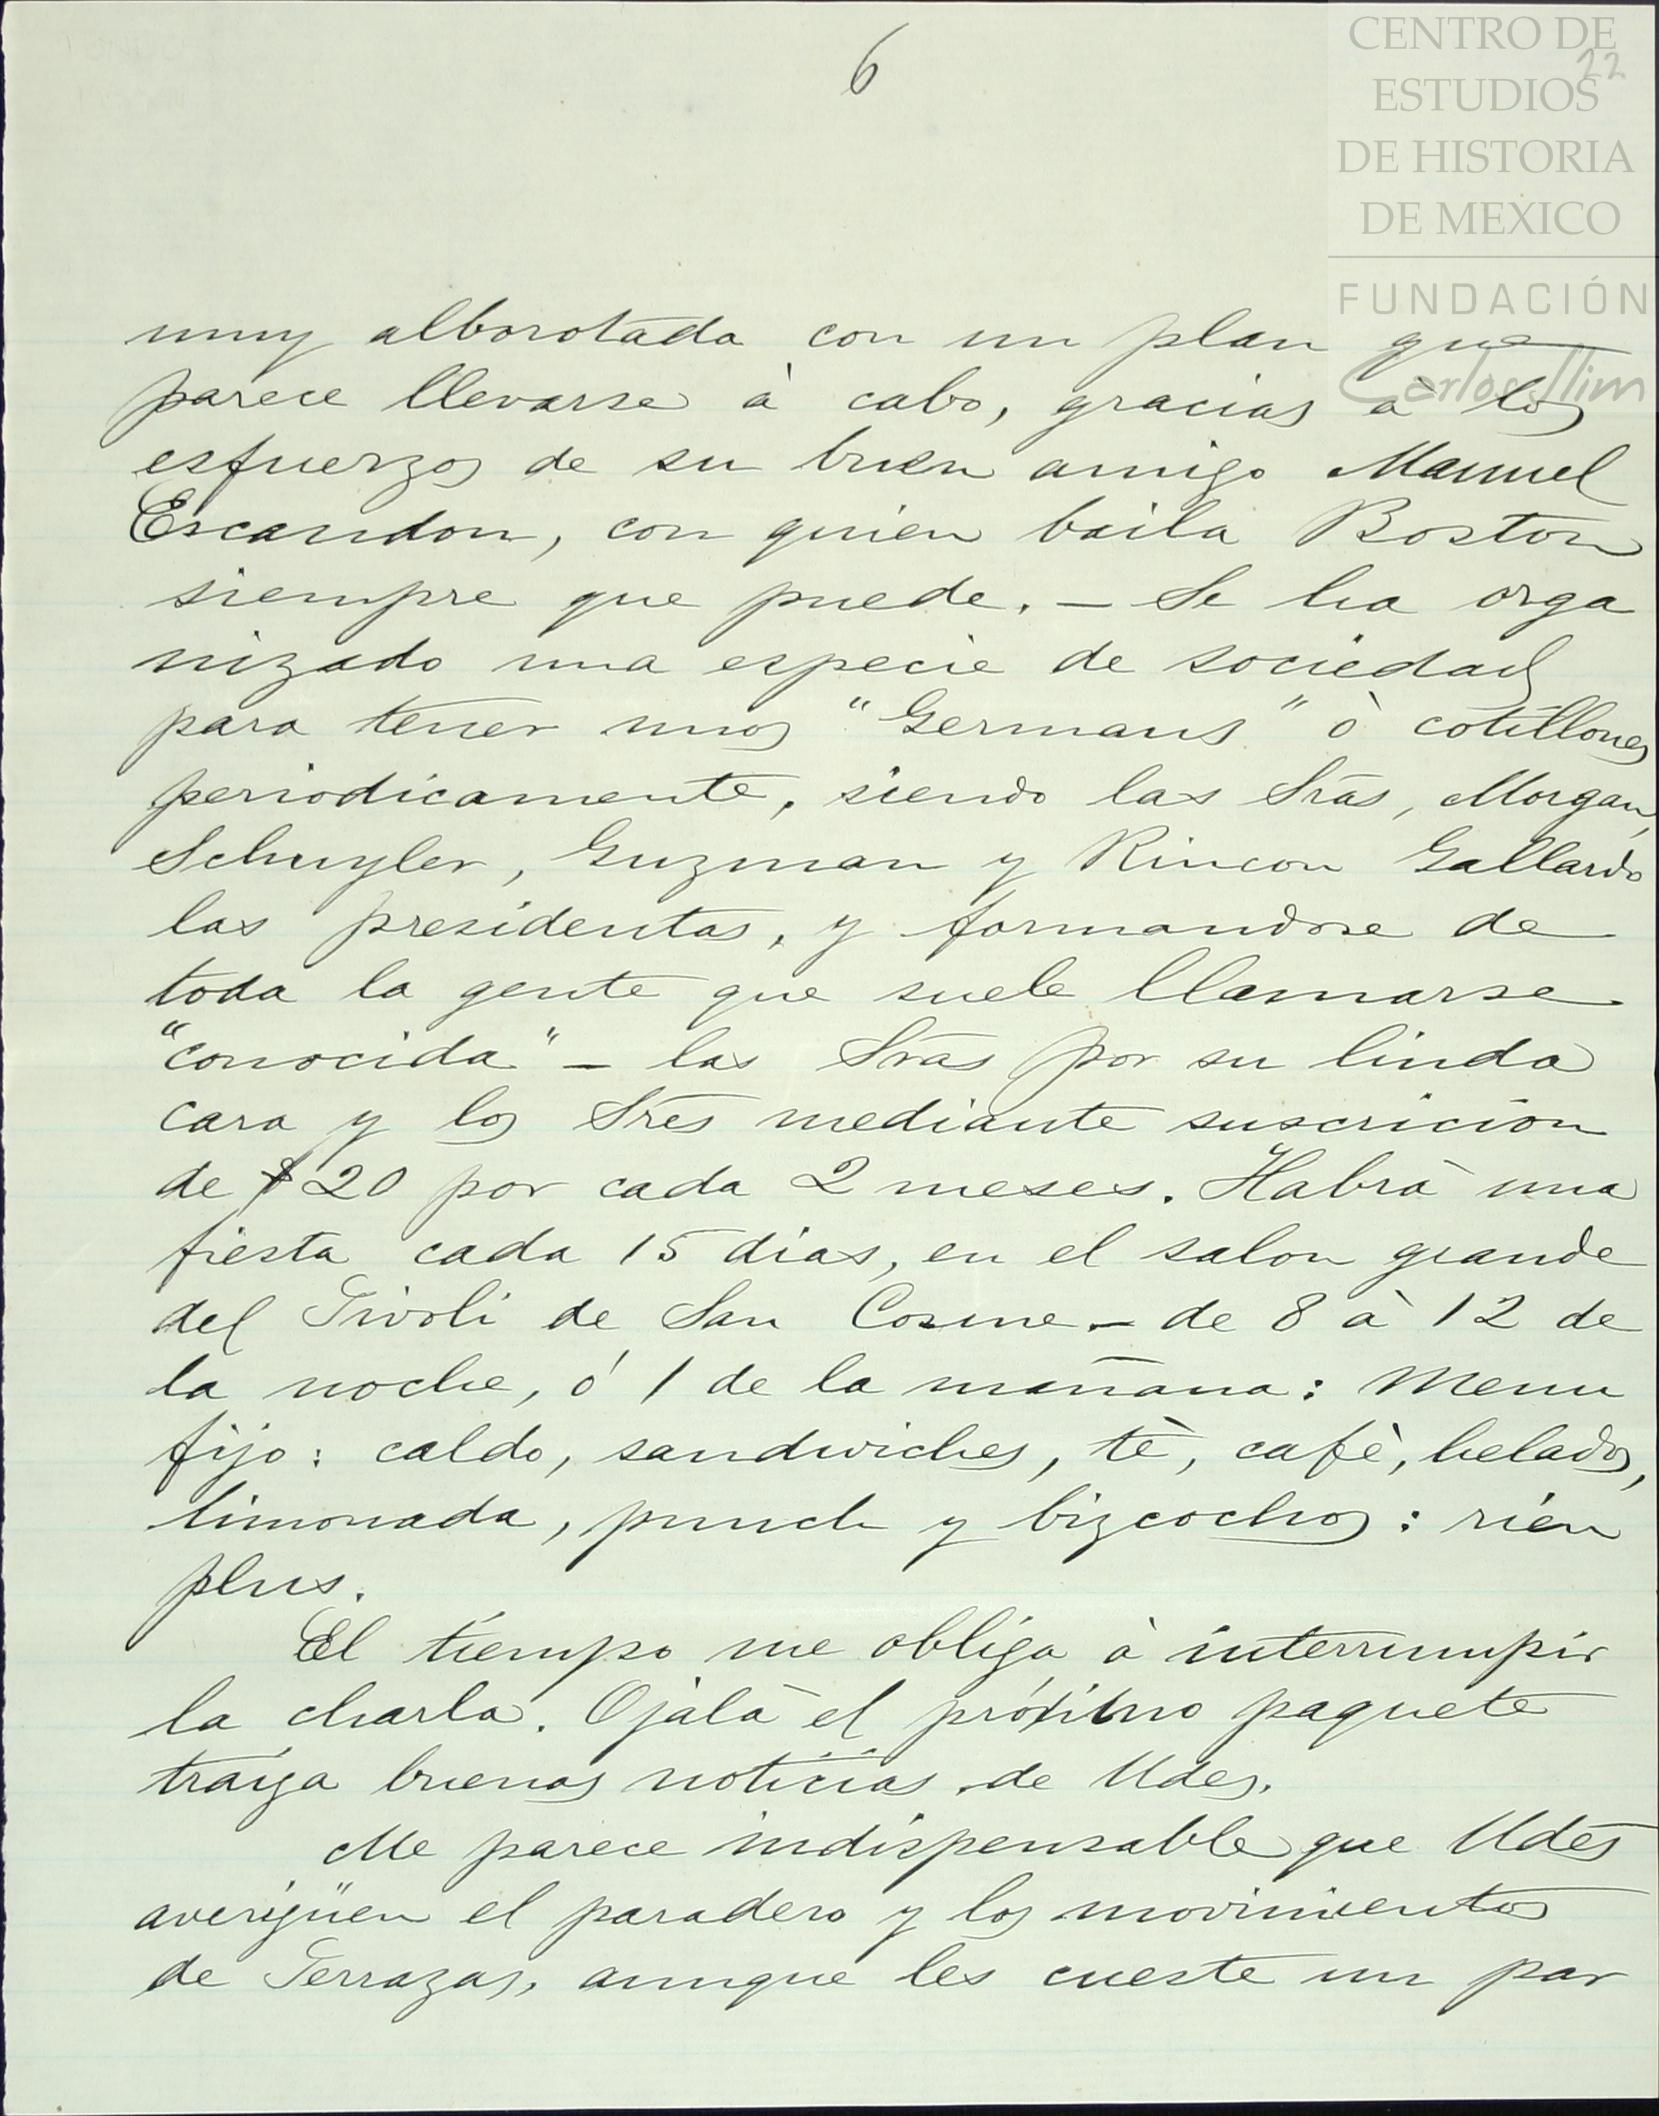 6
22
CENTRO DE
ESTUDIOS
DE HISTORIA
DE MEXICO
FUNDACIÓN
Carlos Slim
muy alborotada con un plan que
parece llevarse à cabo, gracias à los
esfuerzos de su buen amigo Manuel
Escandon, con quien baila Boston
siempre que puede. – Se ha orga
nizado una especie de sociedad
para tener unos "Germans" ò cotillones
periodicamente, siendo las Sras, Morgan,
Schuyler, Guzman y Rincon Gallardo
las presidentas, y formandose de
toda la gente que suele llamarse
"conocida" – las Sras por su linda
cara y los Sres mediante suscricion
de $20 por cada 2 meses. Habrà una
fiesta cada 15 dias, en el salon grande
del Tivoli de San Cosme – de 8 à 12 de
la noche, ó 1 de la mañana: Menu
fijo: caldo, sandwiches, tè, cafè, helados,
limonada, punch y bizcochos: rien
plus.
El tiempo me obliga à interrumpir
la charla. Ojalà el próximo paquete
traiga buenas noticias de Udes.
Me parece indispensable que Udes
averigüen el paradero y los movimientos
de Terrazas, aunque les cueste un par